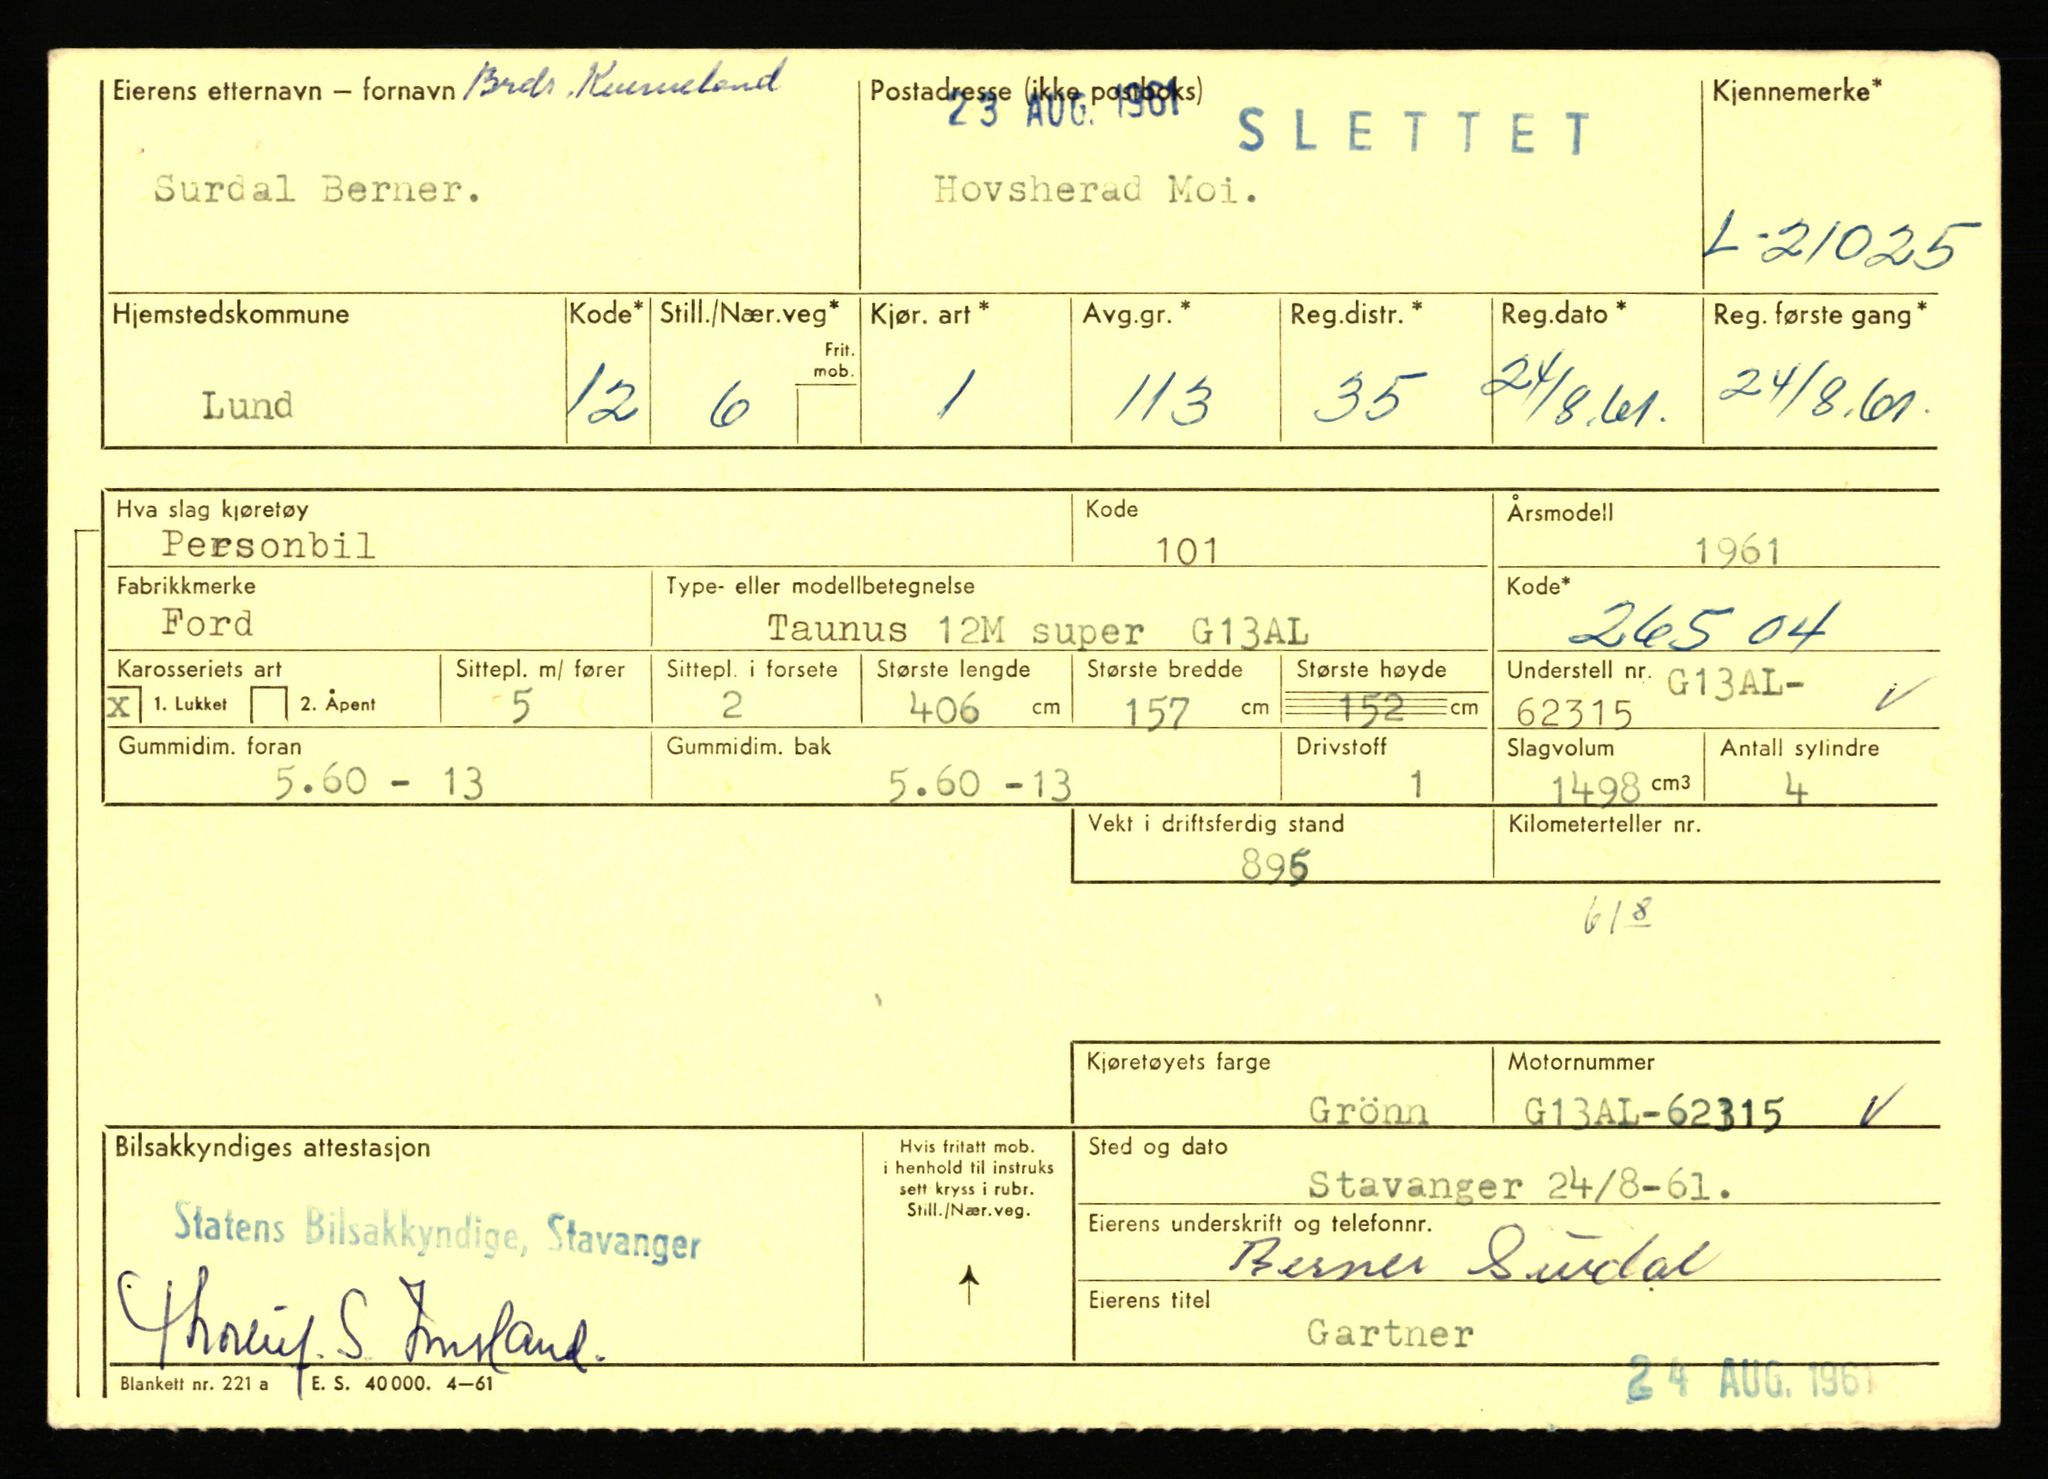 Eierens etternavn – fornavn Brdr. Kverneland
Postadresse (ikke postboks)
Kjennemerke*
23 AUG. 1961
SLETTET
Surdal Berner.
Hovsherad Moi.
L-21025
Hjemstedskommune Kode* Still./Nær.veg* Kjør. art* Avg.gr.* Reg.distr.* Reg.dato* Reg. første gang*
Frit. mob.
Lund 12 6 1 113 35 24/8.61. 24/8.61.
Hva slag kjøretøy Kode Årsmodell
Personbil 101 1961
Fabrikkmerke Type- eller modellbetegnelse Kode*
Ford Taunus 12M super G13AL 265 04
Karosseriets art Sittepl. m/ fører Sittepl. i forsete Største lengde Største bredde Største høyde Understell nr. G13AL-
X 1. Lukket 2. Åpent 5 2 406 cm 157 cm 152 cm 62315 V
Gummidim. foran Gummidim. bak Drivstoff Slagvolum Antall sylindre
5.60 - 13 5.60 -13 1 1498 cm3 4
Vekt i driftsferdig stand Kilometerteller nr.
895
61 8
Kjøretøyets farge Motornummer
Grönn G13AL-62315 V
Bilsakkyndiges attestasjon
Hvis fritatt mob.
i henhold til instruks
sett kryss i rubr.
Still./Nær.veg.
Sted og dato
Stavanger 24/8-61.
Statens Bilsakkyndige, Stavanger
Eierens underskrift og telefonnr.
Berner Surdal
Eierens titel
Gartner
Blankett nr. 221 a E. S. 40 000. 4–61
24 AUG. 1961